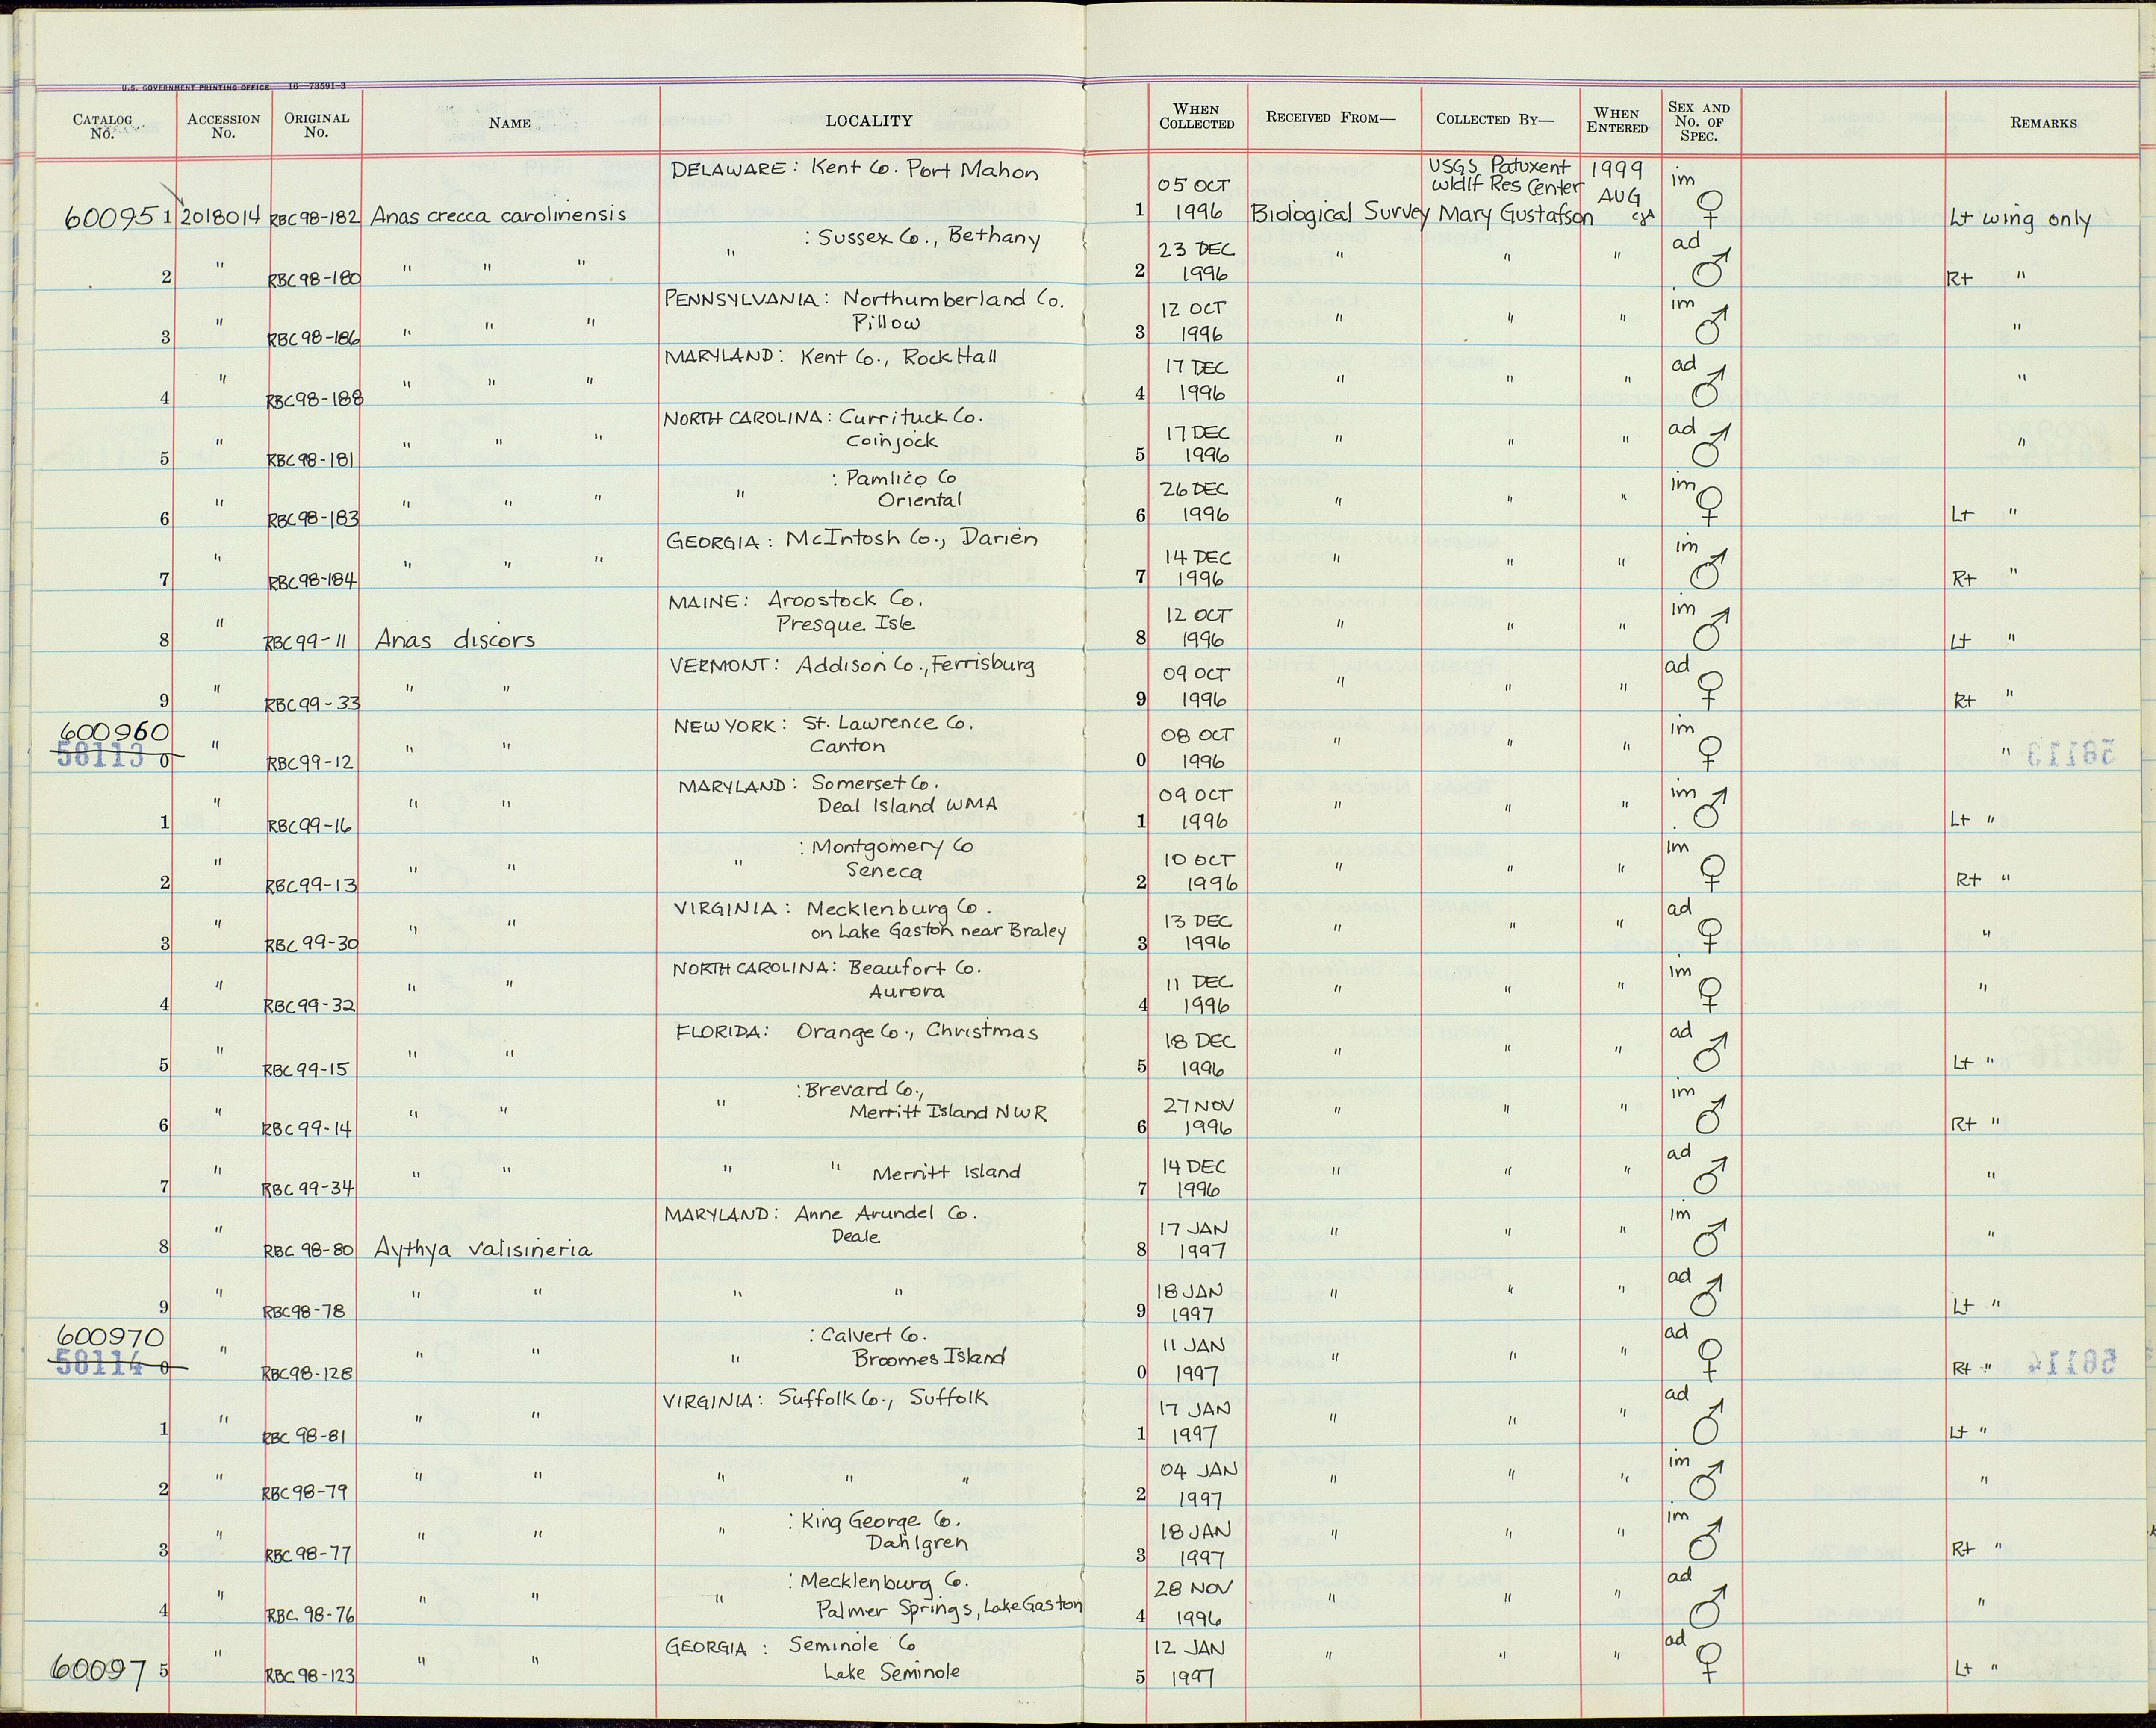 U.S. GOVERNMENT PRINTING OFFICE 16—73591-3
CATALOG No. ACCESSION No. ORIGINAL No. NAME LOCALITY WHEN COLLECTED RECEIVED FROM— COLLECTED BY— WHEN ENTERED SEX AND No. OF SPEC. REMARKS
DELAWARE: Kent Co. Port Mahon USGS Patuxent 1999
05 OCT wldlf Res Center AUG im
600951 2018014 RBC98-182 Anas crecca carolinensis 1 1996 Biological Survey Mary Gustafson ♀ Lt wing only
" : Sussex Co., Bethany 23 DEC ad
2 " RBC98-180 " " " 2 1996 " " " ♂ Rt "
PENNSYLVANIA: Northumberland Co. 12 OCT im
3 " RBC98-186 " " " Pillow 3 1996 " " " ♂ "
MARYLAND: Kent Co., Rock Hall 17 DEC ad
4 " RBC98-188 " " " 4 1996 " " " ♂ "
NORTH CAROLINA: Currituck Co. 17 DEC ad
5 " RBC98-181 " " " Coinjock 5 1996 " " " ♂ "
" : Pamlico Co 26 DEC im
6 " RBC98-183 " " " Oriental 6 1996 " " " ♀ Lt "
GEORGIA: McIntosh Co., Darien 14 DEC im
7 " RBC98-184 " " " 7 1996 " " " ♂ Rt "
MAINE: Aroostock Co. 12 OCT im
8 " RBC99-11 Anas discors Presque Isle 8 1996 " " " ♂ Lt "
VERMONT: Addison Co., Ferrisburg 09 OCT ad
9 " RBC99-33 " " 9 1996 " " " ♀ Rt "
600960 NEW YORK: St. Lawrence Co. 08 OCT im
58113 0 " RBC99-12 " " Canton 0 1996 " " " ♀ " 58113
MARYLAND: Somerset Co. 09 OCT im
1 " RBC99-16 " " Deal Island WMA 1 1996 " " " ♂ Lt "
" : Montgomery Co 10 OCT im
2 " RBC99-13 " " Seneca 2 1996 " " " ♀ Rt "
VIRGINIA: Mecklenburg Co. 13 DEC ad
3 " RBC99-30 " " on Lake Gaston near Braley 3 1996 " " " ♀ "
NORTH CAROLINA: Beaufort Co. 11 DEC im
4 " RBC99-32 " " Aurora 4 1996 " " " ♀ "
FLORIDA: Orange Co., Christmas 18 DEC ad
5 " RBC99-15 " " 5 1996 " " " ♂ Lt "
" : Brevard Co., 27 NOV im
6 " RBC99-14 " " Merritt Island NWR 6 1996 " " " ♂ Rt "
" " Merritt Island 14 DEC ad
7 " RBC99-34 " " 7 1996 " " " ♂ "
MARYLAND: Anne Arundel Co. 17 JAN im
8 " RBC98-80 Aythya valisineria Deale 8 1997 " " " ♂ "
" " 18 JAN ad
9 " RBC98-78 " " 9 1997 " " " ♂ Lt "
600970 : Calvert Co. 11 JAN ad
58114 0 " RBC98-128 " " " Broomes Island 0 1997 " " " ♀ Rt " 58114
VIRGINIA: Suffolk Co., Suffolk 17 JAN ad
1 " RBC98-81 " " 1 1997 " " " ♂ Lt "
" " " 04 JAN im
2 " RBC98-79 " " 2 1997 " " " ♂ "
" : King George Co. 18 JAN im
3 " RBC98-77 " " Dahlgren 3 1997 " " " ♂ Rt "
" : Mecklenburg Co. 28 NOV ad
4 " RBC98-76 " " Palmer Springs, Lake Gaston 4 1996 " " " ♂ "
GEORGIA: Seminole Co 12 JAN ad
600975 " RBC98-123 " " Lake Seminole 5 1997 " " " ♀ Lt "